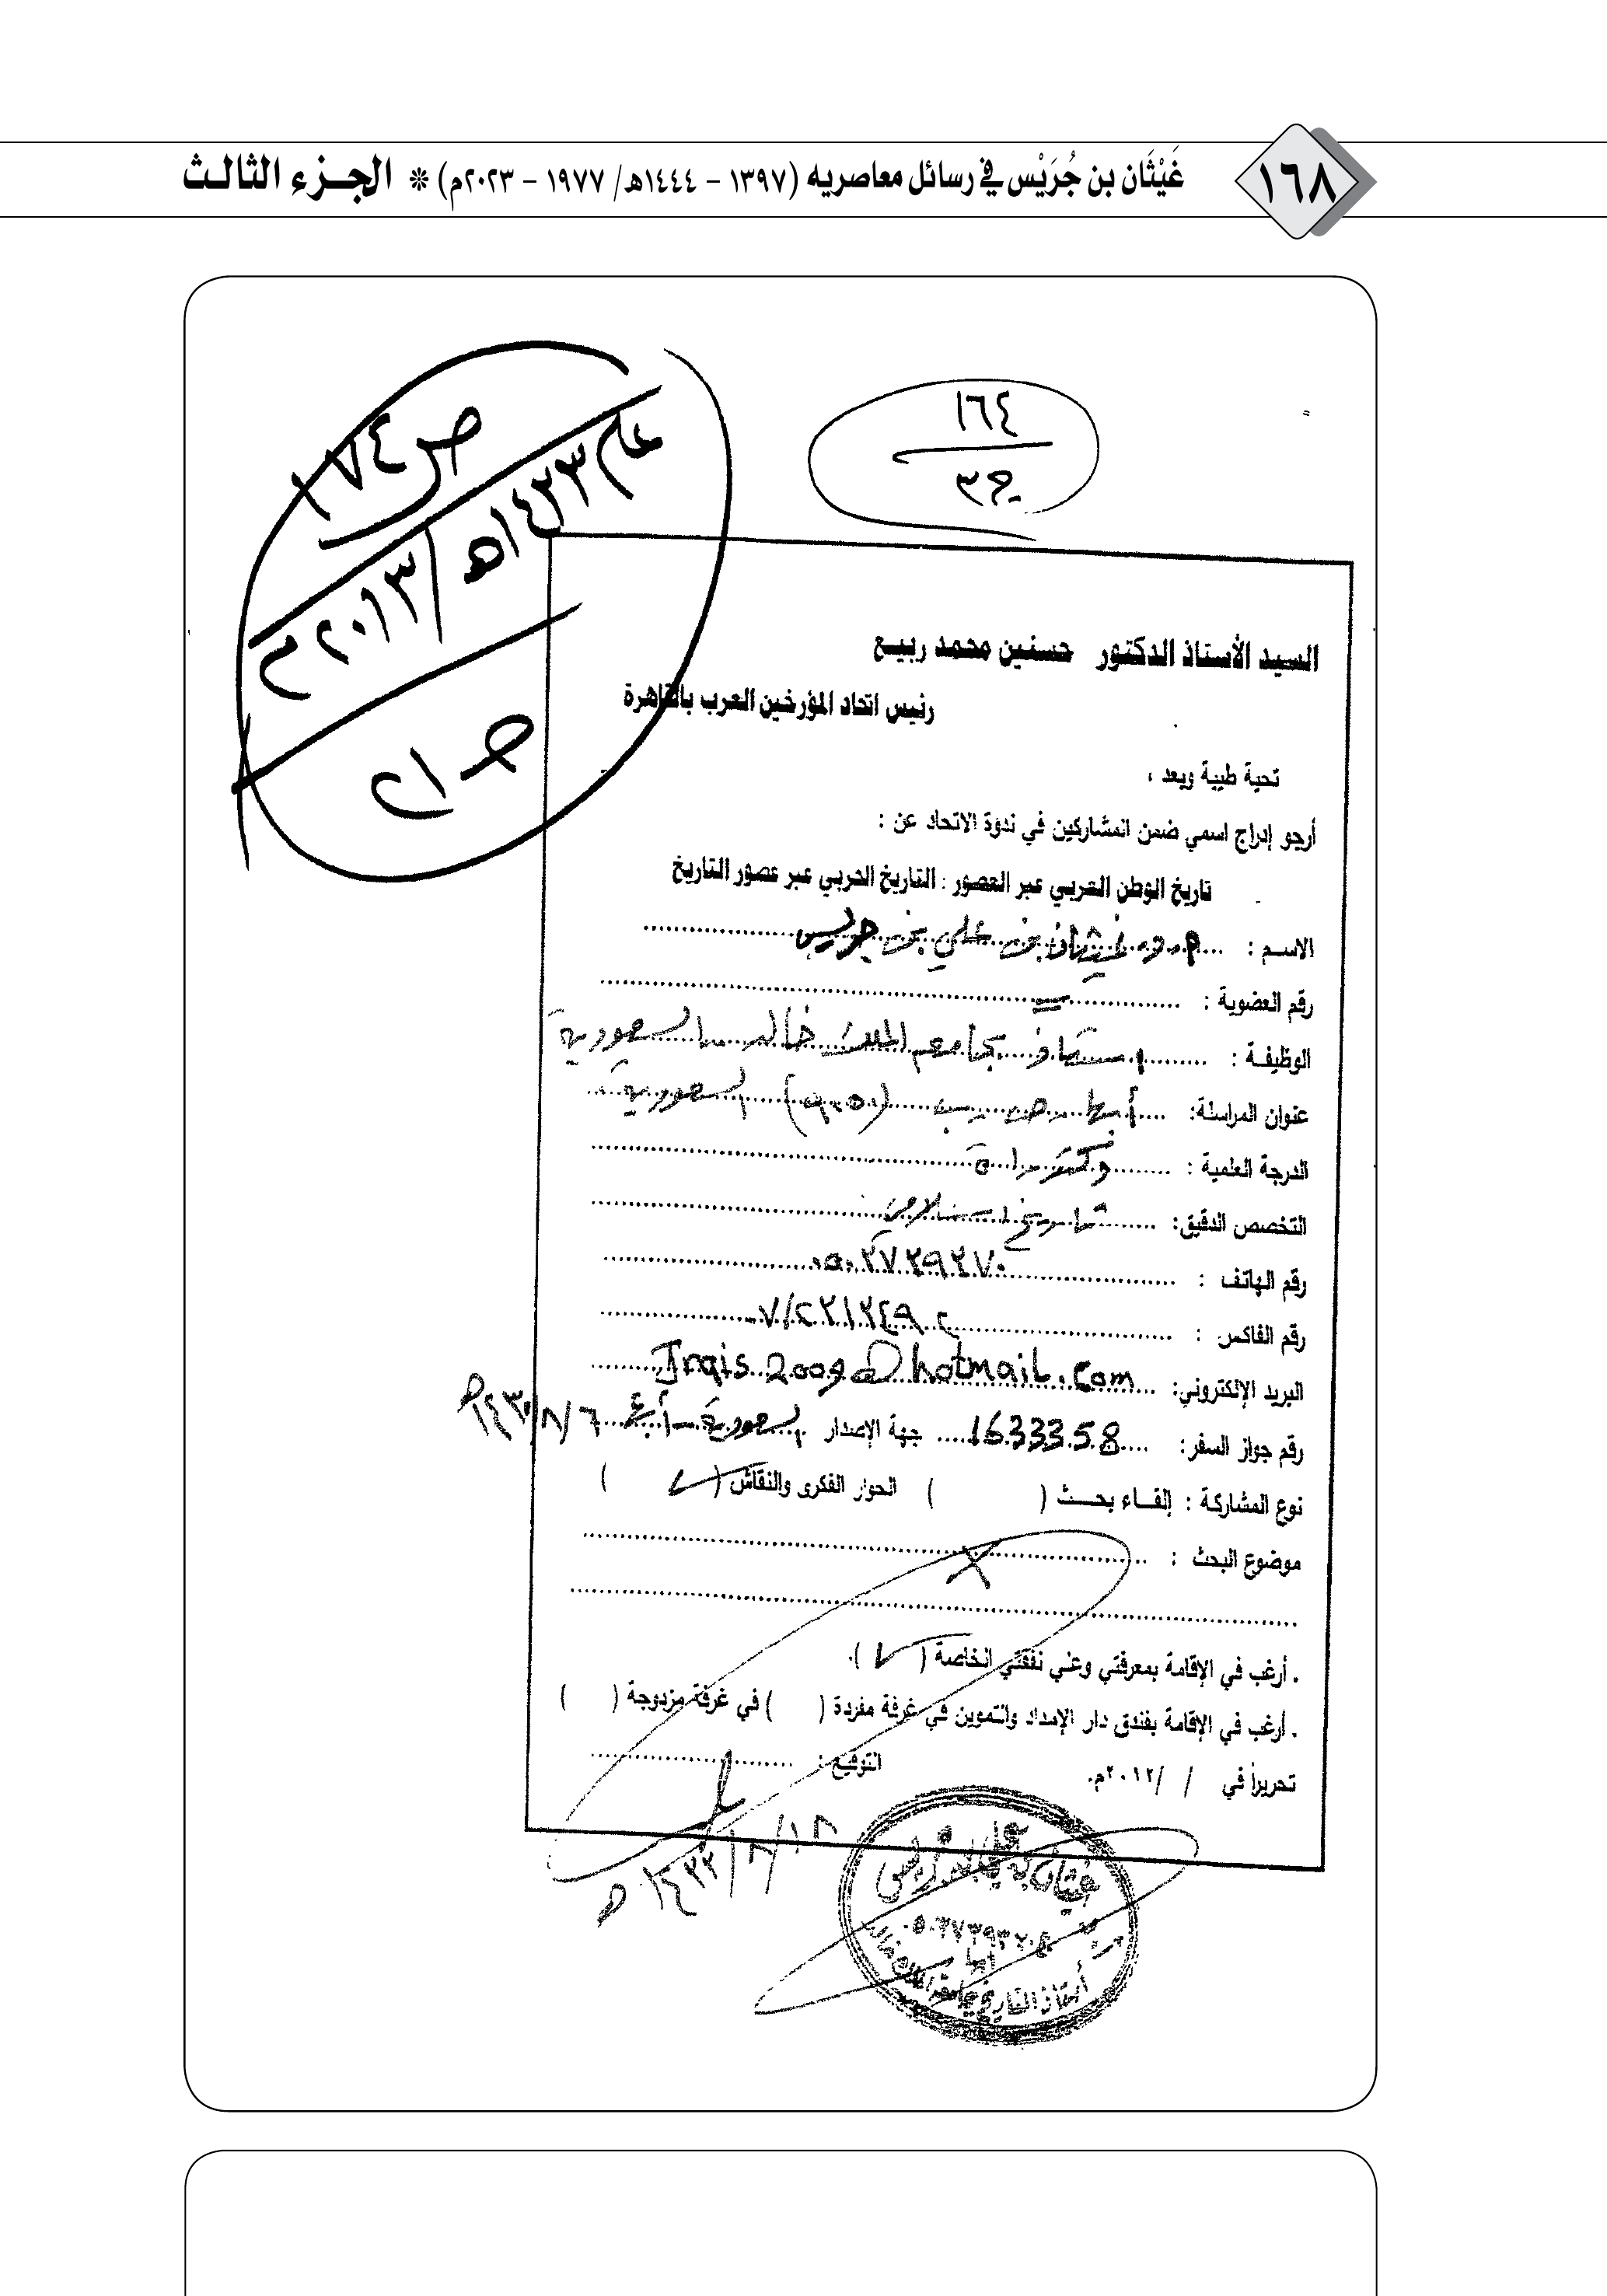 ١٦٨
غَيْثَان بن جُرَيْس في رسائل معاصريه (١٣٩٧ - ١٤٤٤هـ/ ١٩٧٧ - ٢٠٢٣م) * الجزء الثالث
١٦٤
ج٣
ص ١٧٤
عام ١٤٣٣هـ / ٢٠١٣م
السيد الأستاذ الدكتور حسنين محمد ربيع
رئيس اتحاد المؤرخين العرب بالقاهرة
تحية طيبة وبعد ،
أرجو إدراج اسمي ضمن المشاركين في ندوة الاتحاد عن :
تاريخ الوطن العربي عبر العصور : التاريخ الحربي عبر عصور التاريخ
الاسم : أ.د. غيثان بن علي بن جريس
رقم العضوية : =
الوظيفة : أستاذ بجامعة الملك خالد - السعودية
عنوان المراسلة: أبها - ص.ب (٩٠٥٠) السعودية
الدرجة العلمية : دكتوراة
التخصص الدقيق: تاريخ إسلامي
رقم الهاتف : ٠٥٠٢٧٣٩٣٧٠
رقم الفاكس :
البريد الإلكتروني: Jrais.2009@hotmail.com
رقم جواز السفر: 1633358 جهة الإصدار السعودية - أبها ٦/٨/١٤٣٠هـ
نوع المشاركة : إلقاء بحث ( ) الحوار الفكرى والنقاش ( ✓ )
موضوع البحث : ×
. أرغب في الإقامة بمعرفتي وعلى نفقتي الخاصة ( ✓ ).
. أرغب في الإقامة بفندق دار الإمداد والتموين في غرفة مفردة ( ) في غرفة مزدوجة ( )
تحريراً في / /٢٠١٢م. التوقيع :
١٨/٨/١٤٣٣هـ
أبها
أستاذ التاريخ بجامعة الملك خالد